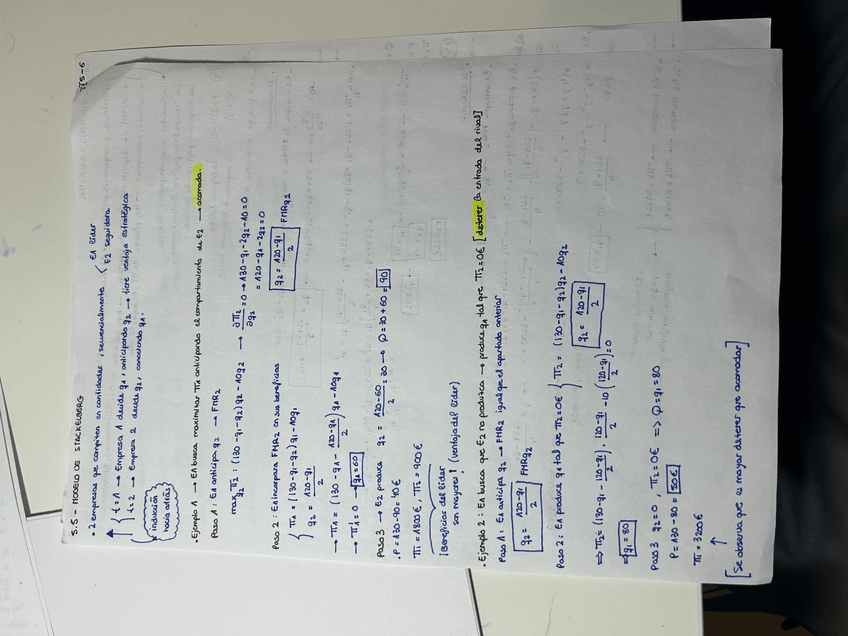 5.5 - MODELO DE STACKELBERG
· 2 empresas que compiten en cantidades, secuencialmente { E1 líder
E2 seguidora
t=1 → Empresa 1 decide q1, anticipando q2 → tiene ventaja estratégica
t=2 → Empresa 2 decide q2, conociendo q1.
inducción
hacia atrás
· Ejemplo 1 → E1 busca maximizar π1 anticipando el comportamiento de E2 → acomoda.
Paso 1: E1 anticipa q2 → FMR2
max q2 π2: (130-q1-q2)q2 - 10q2 → ∂π2/∂q2 = 0 → 130-q1-2q2-10=0
= 120-q1-2q2=0
q2 = 120-q1/2 } FMRq2
Paso 2: E1 incorpora FMR2 en sus beneficios
{ π1 = (130-q1-q2)q1 - 10q1
q2 = 120-q1/2
→ π1 = (130-q1 - 120-q1/2) q1 - 10q1
→ π'1 = 0 → q1=60
Paso 3 → E2 produce q2 = 120-60/2 = 30 → Q=30+60=90
· P=130-90=40€
π1 = 1800€, π2 = 900€
¡Beneficios del líder
son mayores! (ventaja del líder)
· Ejemplo 2: E1 busca que E2 no produzca → produce q1 tal que π2=0€ [detener la entrada del rival]
Paso 1: E1 anticipa q2 → FMR2 igual que el apartado anterior
q2 = 120-q1/2 } FMRq2
Paso 2: E1 produce q1 tal que π2=0€ { π2 = (130-q1-q2)q2 - 10q2
q2 = 120-q1/2
⇒ π2 = (130-q1 - 120-q1/2) · 120-q1/2 - 10 (120-q1/2) = 0
⇒ q1=80
Paso 3 q2=0, π2=0€ ⇒ Q=q1=80
P=130-80=50€
π1=3200€
↑
[Se observa que es mayor detener que acomodar]